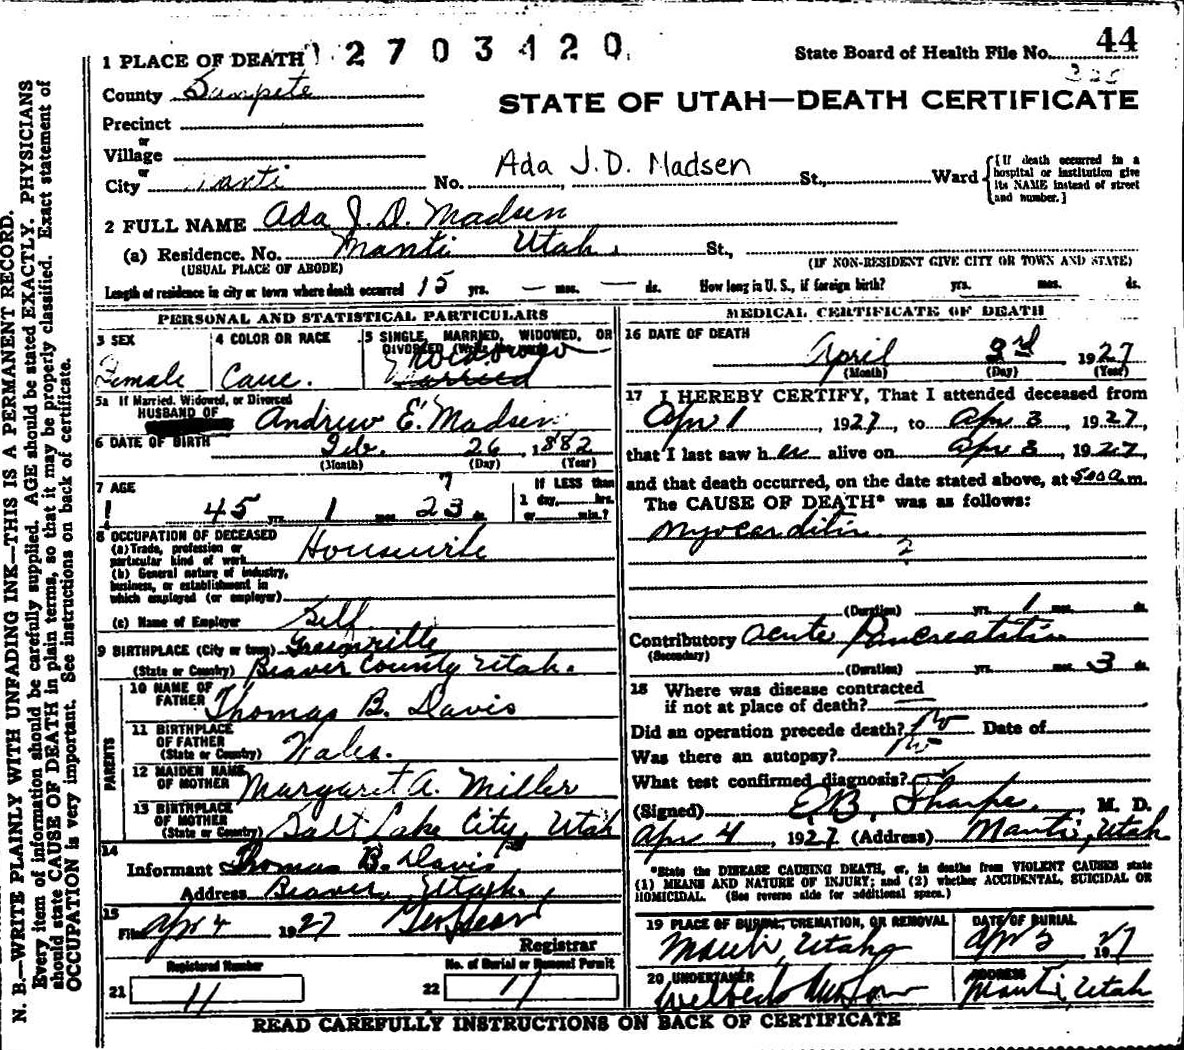 N. B.—WRITE PLAINLY WITH UNFADING INK—THIS IS A PERMANENT RECORD.
Every item of information should be carefully supplied. AGE should be stated EXACTLY. PHYSICIANS
should state CAUSE OF DEATH in plain terms, so that it may be properly classified. Exact statement of
OCCUPATION is very important. See instructions on back of certificate.
2703420
State Board of Health File No. 44
STATE OF UTAH—DEATH CERTIFICATE
1 PLACE OF DEATH
County Sanpete
Precinct
or
Village
or
City Manti No. Ada J.D. Madsen St., Ward
[If death occurred in a hospital or institution give its NAME instead of street and number.]
2 FULL NAME Ada J. D. Madsen
(a) Residence. No. Manti Utah. St.,
(USUAL PLACE OF ABODE) (IF NON-RESIDENT GIVE CITY OR TOWN AND STATE)
Length of residence in city or town where death occurred 15 yrs. — mos. — ds. How long in U. S., if foreign birth? yrs. mos. ds.
PERSONAL AND STATISTICAL PARTICULARS
3 SEX
Female
4 COLOR OR RACE
Cauc.
5 SINGLE, MARRIED, WIDOWED, OR
DIVORCED
Widowed
Married
5a If Married, Widowed, or Divorced
HUSBAND OF Andrew E. Madsen
6 DATE OF BIRTH Feb. 26, 1882
(Month) (Day) (Year)
7 AGE
45 yrs. 1 mos. 23 ds.
7
If LESS than
1 day, hrs.
or min.?
8 OCCUPATION OF DECEASED
(a) Trade, profession or
particular kind of work Housewife
(b) General nature of industry,
business, or establishment in
which employed (or employer)
(c) Name of Employer Self
9 BIRTHPLACE (City or town) Greenville
(State or Country) Beaver County Utah.
PARENTS
10 NAME OF
FATHER Thomas B. Davis
11 BIRTHPLACE
OF FATHER
(State or Country) Wales.
12 MAIDEN NAME
OF MOTHER Margaret A. Miller
13 BIRTHPLACE
OF MOTHER
(State or Country) Salt Lake City, Utah
14
Informant Thomas B. Davis
Address Beaver, Utah.
15
Filed Apr 4 1927
Registrar
Registered Number
21 11
No. of Burial or Removal Permit
22 17
MEDICAL CERTIFICATE OF DEATH
16 DATE OF DEATH
April 3rd 1927
(Month) (Day) (Year)
17 I HEREBY CERTIFY, That I attended deceased from
Apr 1 1927, to Apr 3, 1927,
that I last saw her alive on Apr 3, 1927,
and that death occurred, on the date stated above, at 500 a.m.
The CAUSE OF DEATH* was as follows:
Myocarditis
2
(Duration) yrs. 1 mos. ds.
Contributory Acute Pancreatitis
(Secondary)
(Duration) yrs. mos. 3 ds.
18 Where was disease contracted
if not at place of death?
Did an operation precede death? No Date of
Was there an autopsy? No
What test confirmed diagnosis?
(Signed) E.B. Sharpe, M. D.
Apr 4, 1927 (Address) Manti, Utah
*State the DISEASE CAUSING DEATH, or, in deaths from VIOLENT CAUSES state
(1) MEANS AND NATURE OF INJURY; and (2) whether ACCIDENTAL, SUICIDAL OR
HOMICIDAL. (See reverse side for additional space.)
19 PLACE OF BURIAL, CREMATION, OR REMOVAL
Manti, Utah
DATE OF BURIAL
Apr 5 1927
20 UNDERTAKER
ADDRESS
Manti, Utah
READ CAREFULLY INSTRUCTIONS ON BACK OF CERTIFICATE